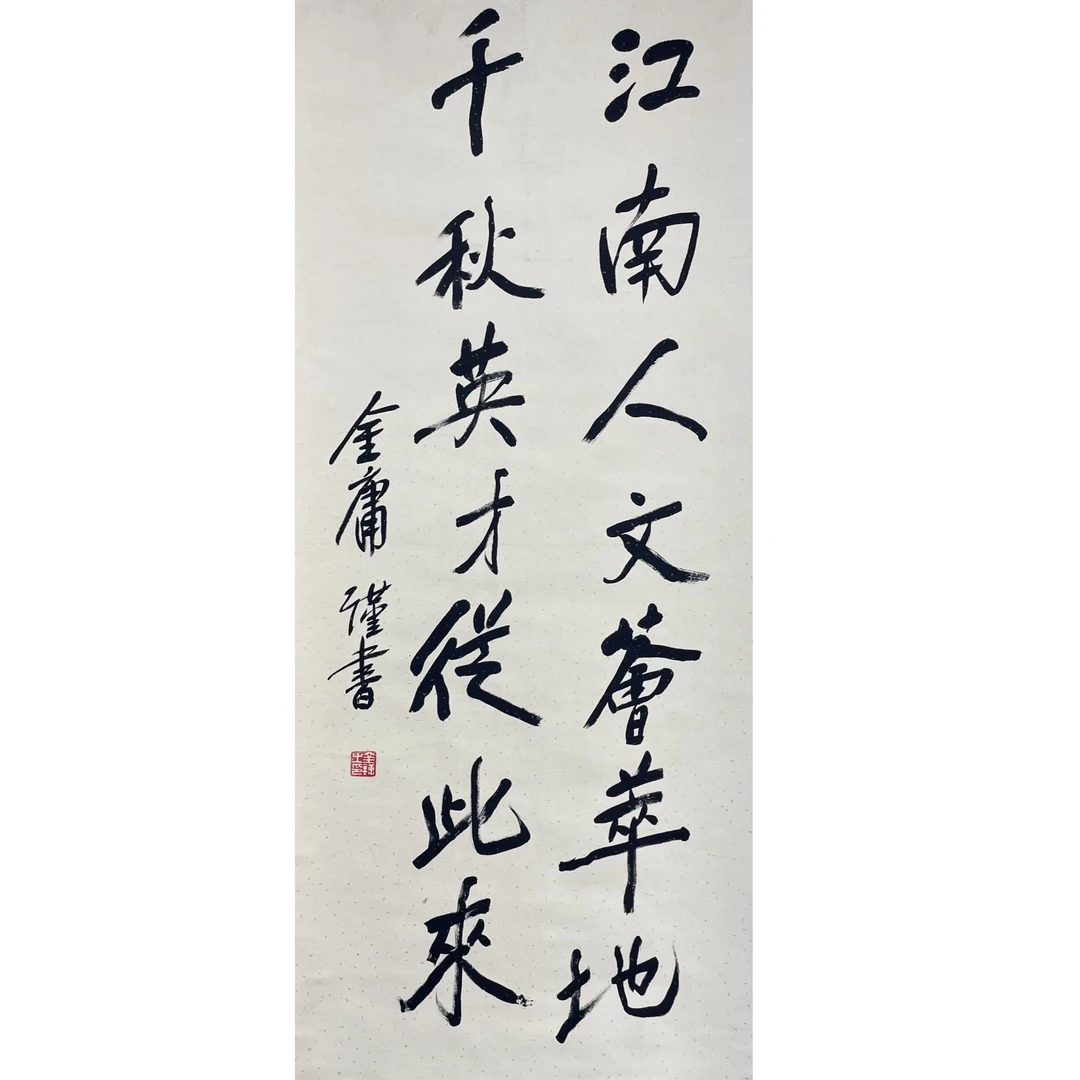 江南人文薈萃地
千秋英才從此來
金庸 謹書